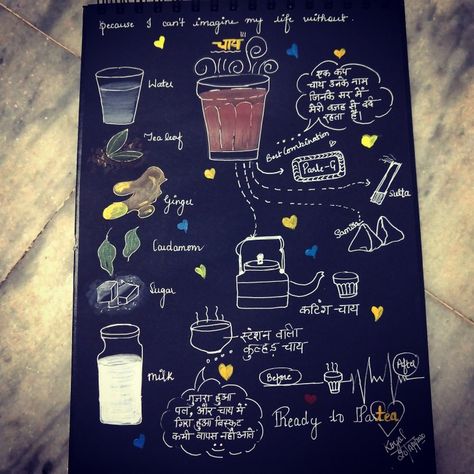 because I can't imagine my life without.
चाय
Water
एक कप
चाय उनके नाम
जिनके सर में
मेरी वजह से दर्द
रहता है।
Tea leaf
Best Combination
Parle-G
Sutta
Ginger
Samosa
Cardamom
Sugar
कटिंग-चाय
स्टेशन वाला
कुल्हड़ चाय
Milk
Before
After
गुजरा हुआ
पल, और चाय में
गिरा हुआ बिस्कुट
कभी वापस नहीं आते
Ready to Partea